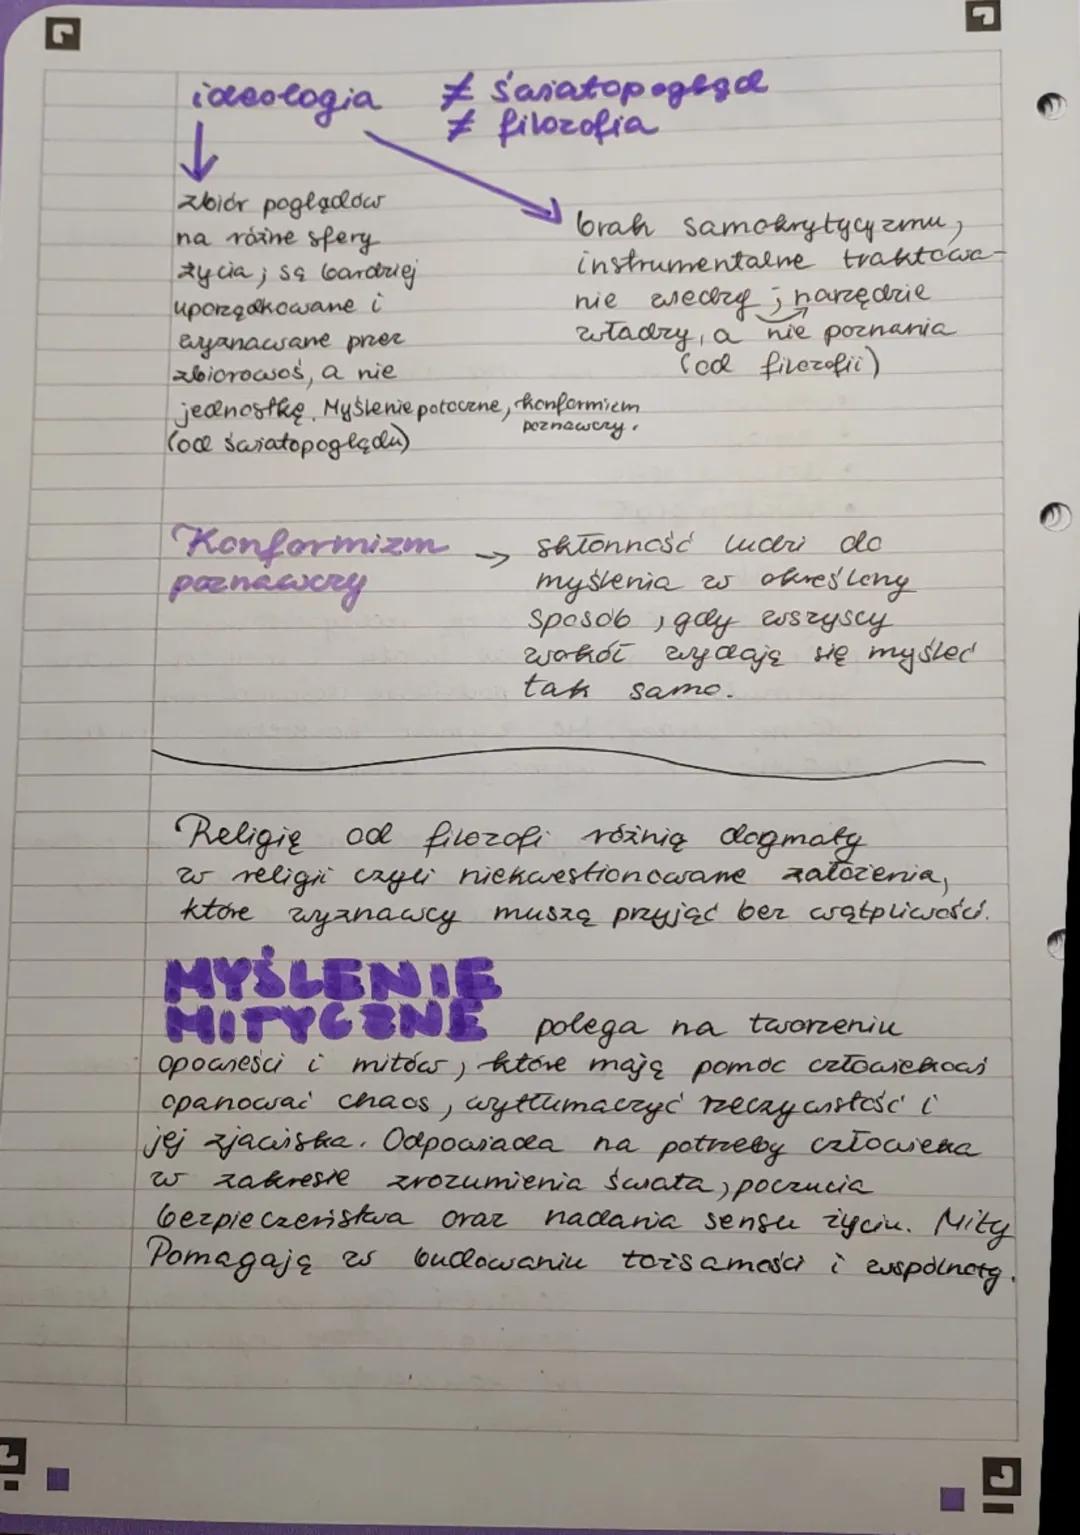 ideologia ≠ światopogląd
≠ filozofia
zbiór poglądów
na różne sfery
życia; są bardziej
uporządkowane i
wyznawane przez
zbiorowoś, a nie
jednostkę. Myślenie potoczne, konformizm
poznawczy.
(od światopoglądu)
brak samokrytycyzmu,
instrumentalne traktowa-
nie wiedzy; narzędzie
władzy, a nie poznania
(od filozofii)
Konformizm
poznawczy
→ skłonność ludzi do
myślenia w określony
sposób, gdy wszyscy
wokół wydają się myśleć
tak samo.
Religię od filozofi różnią dogmaty
w religii czyli niekwestionowane założenia,
które wyznawcy muszą przyjąć bez wątpliwości.
MYŚLENIE
MITYCZNE polega na tworzeniu
opowieści i mitów, które mają pomóc człowiekowi
opanować chaos, wytłumaczyć rzeczywistość i
jej zjawiska. Odpowiada na potrzeby człowieka
w zakresie zrozumienia świata, poczucia
bezpieczeństwa oraz nadania sensu życiu. Mity
Pomagają w budowaniu tożsamości i wspólnoty.